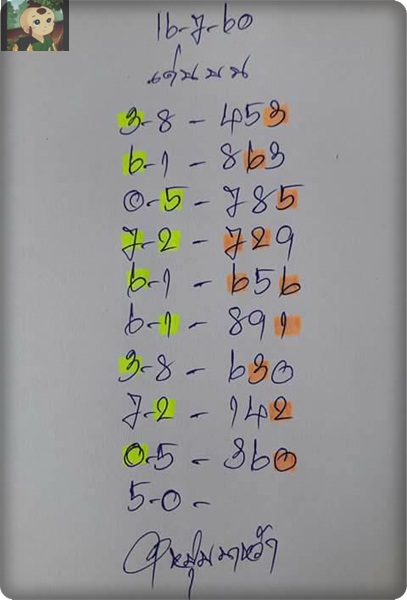 16-7-60
เด่นบน
3-8 - 453
6-1 - 863
0-5 - 785
7-2 - 729
6-1 - 656
6-1 - 891
3-8 - 630
7-2 - 142
0-5 - 360
5-0 -